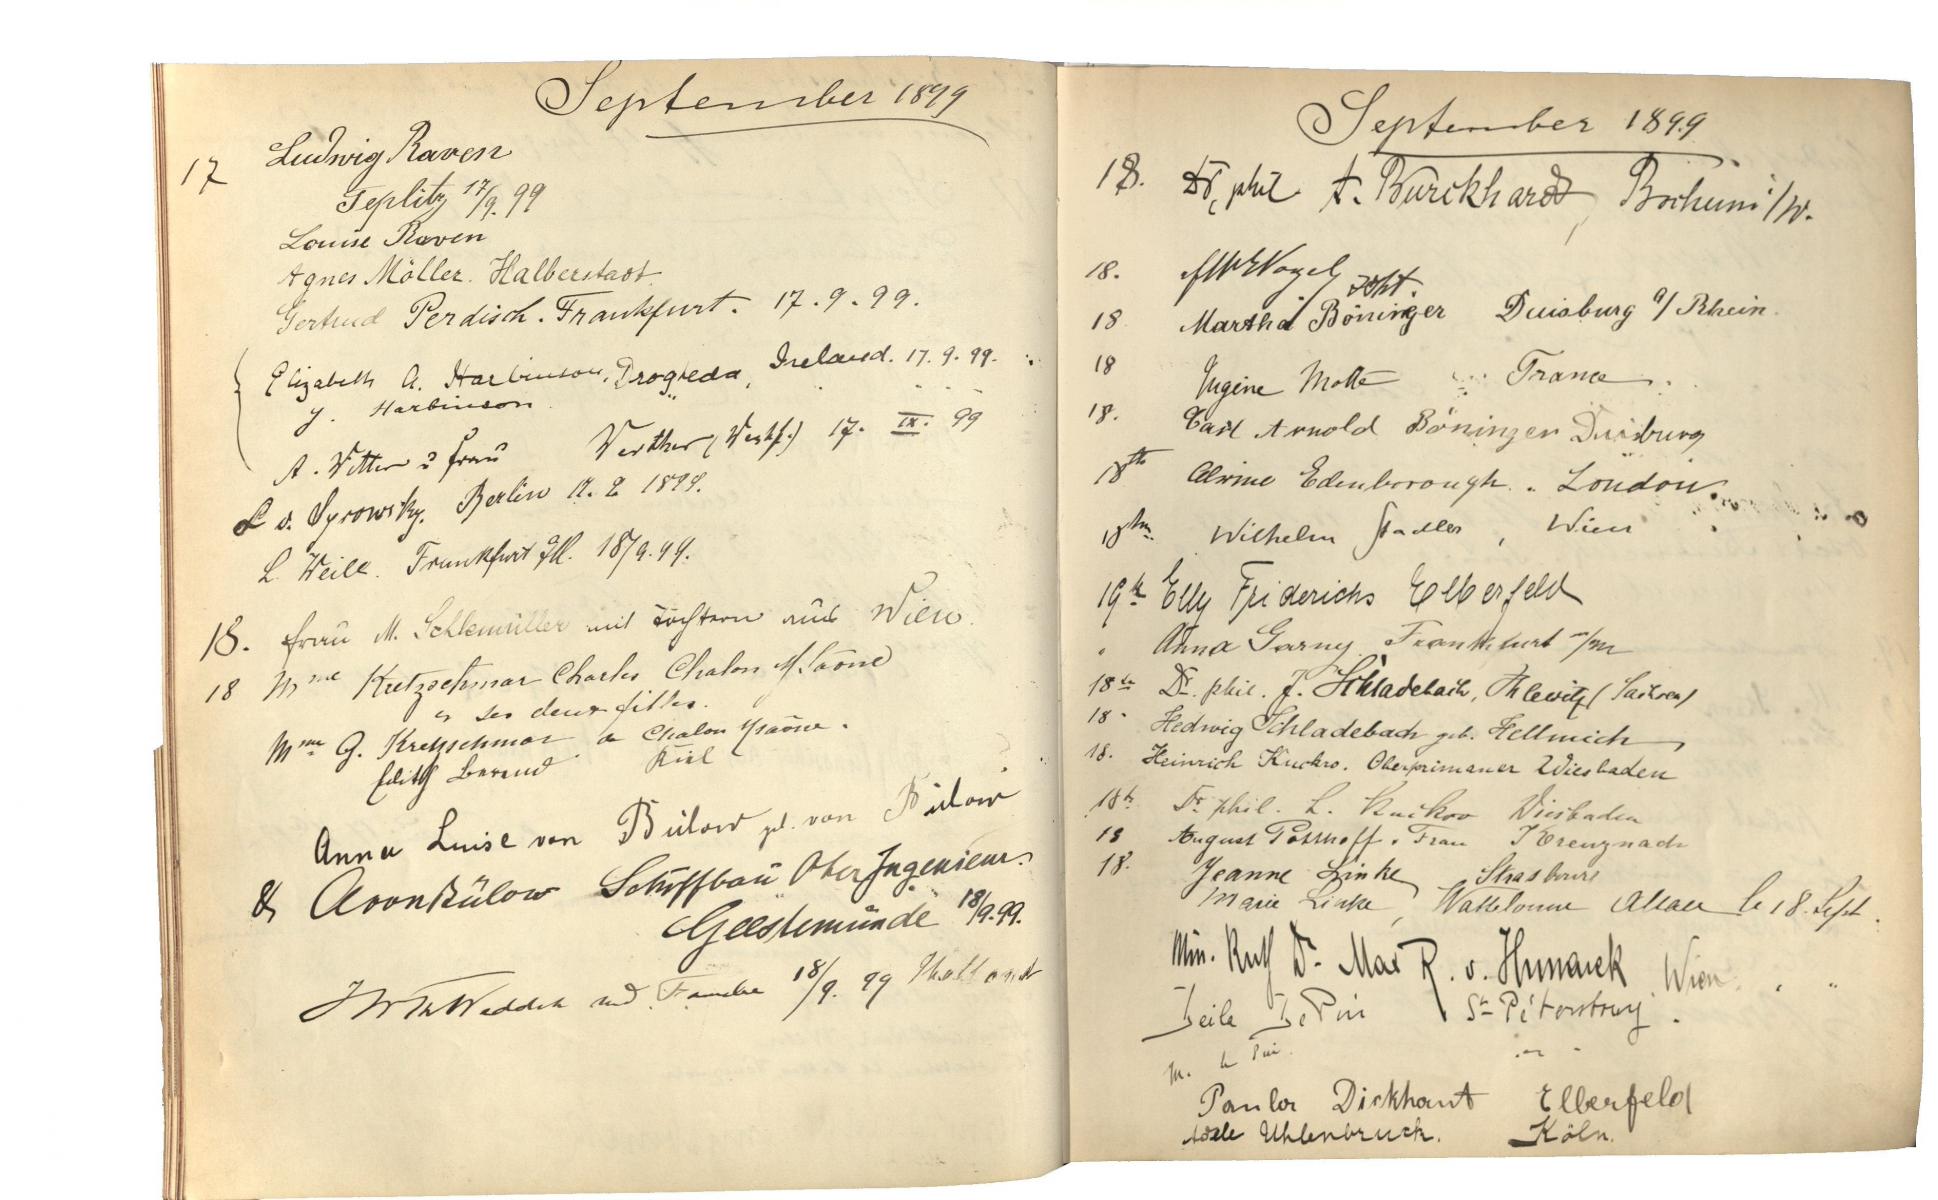 September 1899
17 Ludwig Raven
Teplitz 17/9. 99
Louise Raven
Agnes Möller. Halberstadt.
Gertrud Perdisch. Frankfurt. 17.9.99.
Elizabeth A. Harbinson, Drogheda, Ireland. 17.9.99.
J. Harbinson
A. Witter u Frau Werther (Westf.) 17. IX. 99
L v. Berlin 1899.
L. Weill. Frankfurt a/M. 18/9.99.
18. Frau M. Schlemüller mit Töchtern aus Wien.
18 Mme Kretzschmar Charles Chalon s/Saône
et ses deux filles.
Mme G. Kretzschmar à Chalon s/Saône.
Edith Berend Kiel
Anna Luise von Bülow geb. von Bülow
& A von Bülow Schiffbau Ober Ingenieur.
Geestemünde 18/9.99.
und Familie 18/9. 99 Holland
September 1899
18. Dr. phil A. Burckhardt, Bochum i/W.
18. Vogel
18 Martha Böninger Duisburg a/Rhein.
18 Eugène Motte France.
18. Carl Arnold Böninger Duisburg
18th Edenborough. London.
18ten Wilhelm Stadler, Wien
19te Elly Friderichs Elberfeld
" Anna Garny. Frankfurt a/M
18te Dr. phil. J. Schladebach, (Sachsen)
18. Hedwig Schladebach geb. Hellmich
18. Heinrich Kuckro. Oberprimaner Wiesbaden
18te Dr phil. L. Kuckro Wiesbaden
18 August Potthoff u. Frau Kreuznach
18. Jeanne Linke Strasbourg
Marie Linke, le 18. Sept.
Min. Dr. Max R. v. Wien
St Pétersbourg.
M.
Elberfeld
Adele Uhlenbruck. Köln.